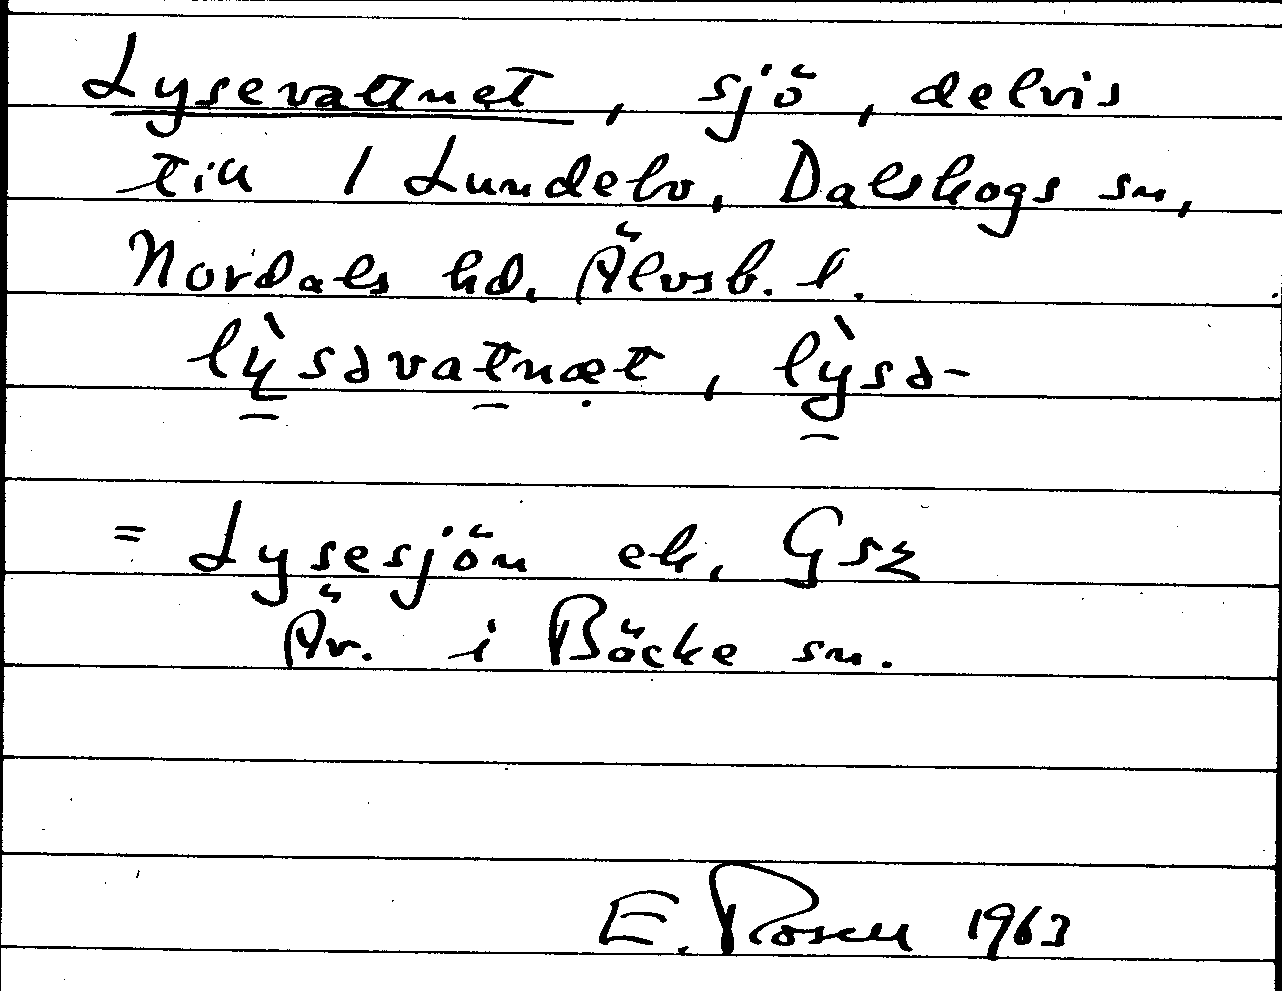 Lysevattnet, sjö, delvis
till 1 Lundebo, Dalskogs sn,
Nordals hd. Älvsb. l.
lỳsəvatnæt, lỳsə-
= Lysesjön ek, Gsz
Äv. i Bäcke sn.
E. Rosell 1963